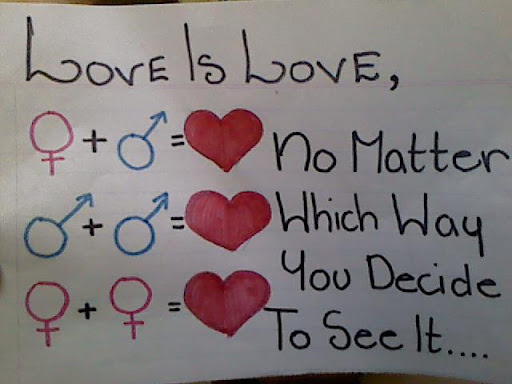 Love Is Love,
♀ + ♂ = ♥ No Matter
♂ + ♂ = ♥ Which Way
You Decide
♀ + ♀ = ♥ To See It....